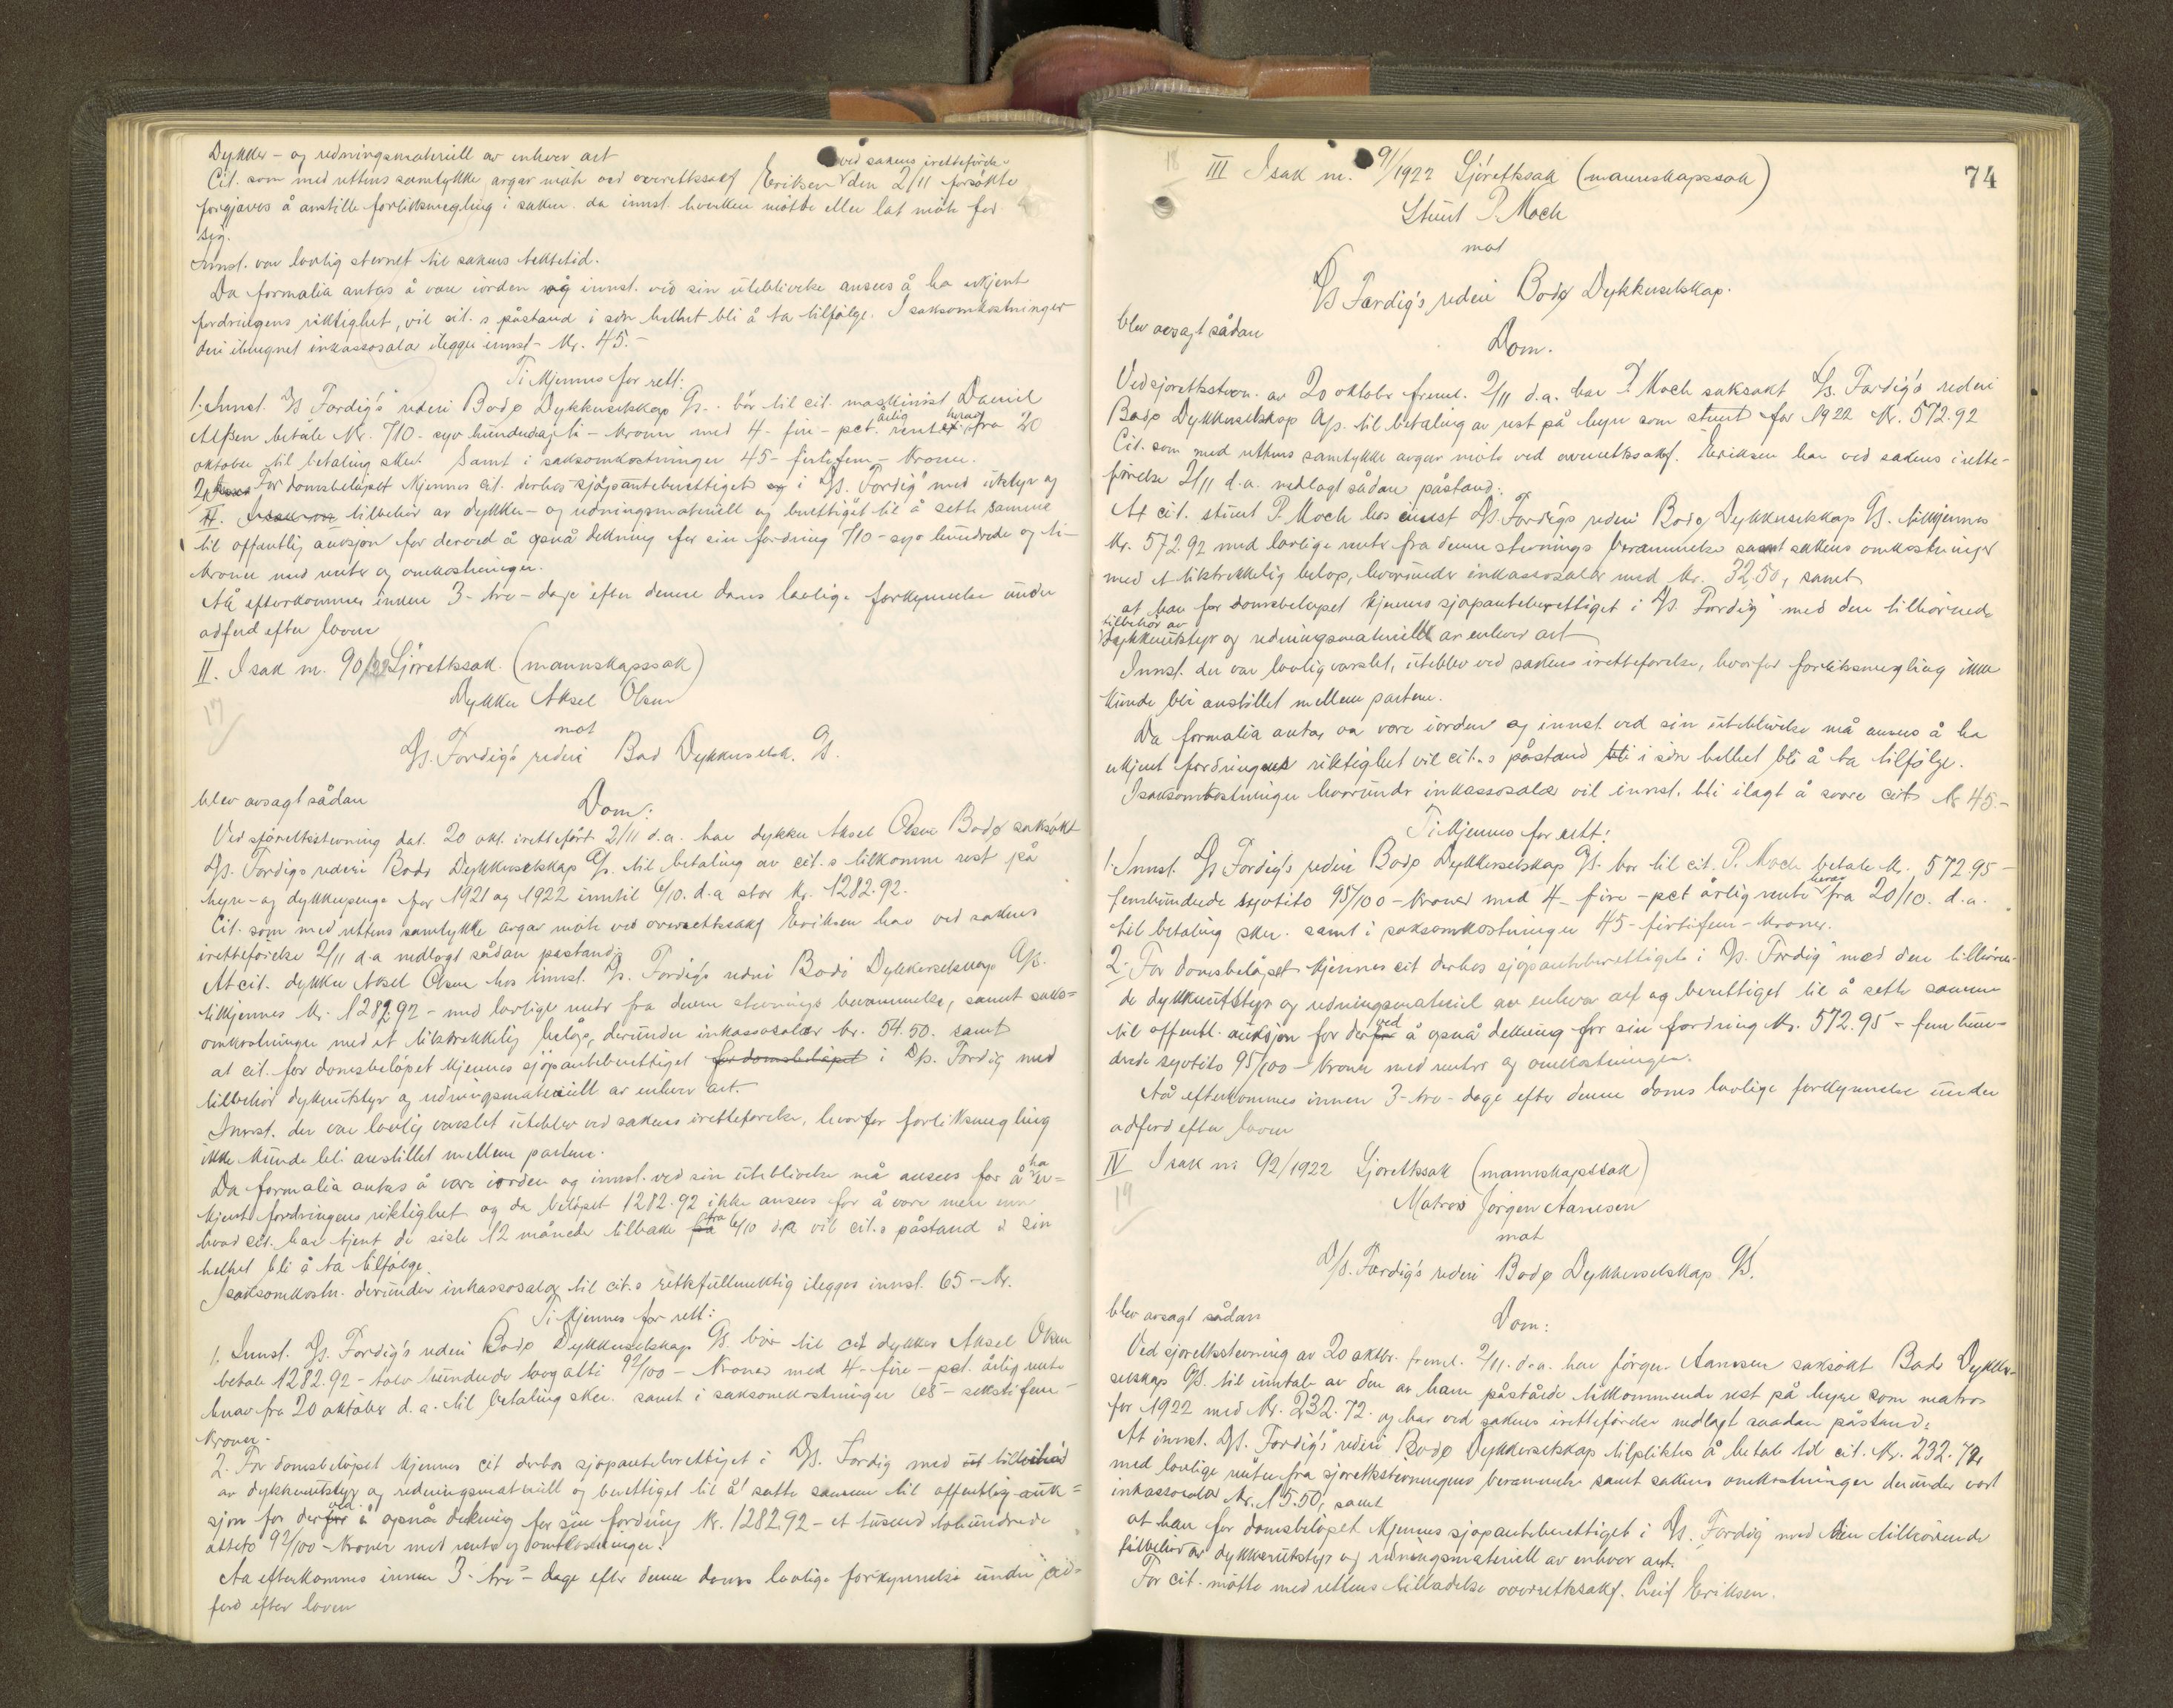 Dykker- og redningsmateriell av enhver art
ved sakens iretteförelse
Cit. som med rettens samtykke avgav möte ved overrettssakf Eriksen den 2/11 forsökte
forgjæves å anstille forliksmegling i saken da innst. hverken mötte eller lot möte for
sig.
Innst. var lovlig stevnet til sakens tektetid.
Da formalia antas å være iorden og innst. ved sin uteblivelse ansees å ha erkjent
fordringens riktighet, vil cit.s påstand i sin helhet bli å ta tilfölge. I saksomkostninger
deri iberegnet inkassosalær ilegges innst. Kr. 45.-
Ti kjennes for rett:
1. Innst. D/S Fordig's rederi Bodø Dykkerselskap A/S. bör til cit. maskinist Daniel
Alfsen betale Kr. 710- syv hundredeogti- kroner med 4- fire- pct. årlig rente herav fra 20
oktober til betaling skjer samt i saksomkostninger 45- firtifem- Kroner.
2. For domsbelöpet kjennes cit. derhos sjöpanteberettiget i D/S. Fordig med utstyr og
tilbehör av dykker- og redningsmateriell og berettiget til å sette samme
til offentlig auksjon for derved å opnå dekning for sin fordring 710- syv hundrede og ti-
kroner med renter og omkostninger.
Å efterkommes innen 3- tre- dage efter denne doms lovlige forkynnelse under
adferd efter loven
II. I sak nr. 90/22 Sjörettssak. (mannskapssak)
17
Dykker Aksel Olsen
mot
D/S. Fordig's rederi Bod Dykkerselsk. A/S.
blev avsagt sådan
Dom:
Ved sjörettsstevning dat. 20 okt. iretteført 2/11 d.a. har dykker Aksel Olsen Bodø saksökt
D/S. Fordigs rederi Bodø Dykkerselskap A/S. til betaling av cit.s tilkomne rest på
hyre- og dykkerpenge for 1921 og 1922 inntil 6/10. d.a stor Kr. 1282.92.
Cit. som med rettens samtykke avgav möte ved overrettssakf Eriksen har ved sakens
iretteförelse 2/11 d.a nedlagt sådan påstand:
At cit. dykker Aksel Olsen hos innst. D/S. Fordigs rederi Bodö Dykkerselskap A/S.
tilkjennes Kr. 1282.92 - med lovlige renter fra denne stevnings berammelse, samt saks=
omkostninger med et tilstrekkelig belöp, derunder inkassosalær kr. 54.50. samt
at cit. for domsbelöpet kjennes sjöpanteberettiget for domsbelöpet i D/S. Fordig med
tilbehör dykkerutstyr og redningsmateriell av enhver art.
Innst. der var lovlig varslet uteblev ved sakens iretteförelse, hvorfor forliksmegling
ikke kunde bli anstillet mellem partene.
Da formalia antas å være iorden og innst. ved sin uteblivelse må ansees for å ha er=
kjent fordringens riktighet og da belöpet 1282.92 ikke ansees for å være mere enn
hvad cit. har tjent de siste 12 måneder tilbake fra 6/10 d.a vil cit.s påstand i sin
helhet bli å ta tilfölge.
I saksomkostn. derunder inkassosalær til cit.s rettsfullmektig ilegges innst. 65- Kr.
Ti kjennes for rett:
1. Innst. D/S. Fordig's rederi Bodø Dykkerselskap A/S. bör til cit dykker Aksel Olsen
betale 1282.92 - tolv hundrede toogåtti 92/100 - Kroner med 4- fire- pct. årlig rente
herav fra 20 oktober d.a. til betaling skjer. samt i saksomkostninger 65- sekstifem-
Kroner.
2. For domsbelöpet kjennes cit derhos sjöpanteberettiget i D/S. Fordig med tilbehör
av dykkerutstyr og redningsmateriell og berettiget til å sette samme til offentlig auk=
sjon for derved å opnå dekning for sin fordring Kr. 1282.92 - et tusend tohundrede
åttito 92/100 - Kroner med rente og omkostninger.
Å efterkommes innen 3- tre- dage efter denne doms lovlige forkynnelse under ad=
ferd efter loven
74
18
III I sak nr. 91/1922 Sjörettssak (mannskapssak)
Stuert P. Moch
mot
D/S Fordig's rederi Bodø Dykkerselskap.
blev avsagt sådan
Dom.
Ved sjörettsstevn. av 20 oktober freml. 2/11 d.a. har P. Moch saksökt D/S. Fordig's rederi
Bodø Dykkerselskap A/S. til betaling av rest på hyre som stuert for 1922 Kr. 572.92
Cit. som med rettens samtykke avgav möte ved overrettssakf. Eriksen har ved sakens irette-
förelse 2/11 d.a. nedlagt sådan påstand:
At cit. stuert P. Moch hos innst D/S Fordigs rederi Bodø Dykkerselskap A/S. tilkjennes
Kr. 572.92 med lovlige renter fra denne stevnings berammelse samt sakens omkostninger
med et tilstrekkelig belöp, hvorunder inkassosalær med Kr. 32,50, samt
at han for domsbelöpet kjennes sjöpanteberettiget i D/S. Fordig" med den tilhörende
tilbehör av
dykkerutstyr og redningsmateriell av enhver art
Innst. der var lovlig varslet, uteblev ved sakens iretteförelse, hvorfor forliksmegling ikke
kunde bli anstillet mellem partene.
Da formalia antas å være iorden og innst. ved sin uteblivelse må ansees å ha
erkjent fordringens riktighet vil cit.s påstand i sin helhet bli å ta tilfölge.
I saksomkostninger hvorunder inkassosalær vil innst. bli ilagt å svare cit Kr 45.-
Ti kjennes for rett:
1. Innst. D/S Fordig's rederi Bodø Dykkerselskap A/S. bör til cit. P. Moch betale Kr. 572.95-
femhundrede syvtito 95/100 - Kroner med 4- fire- pct årlig rente herav fra 20/10. d.a.
til betaling skjer. samt i saksomkostninger 45- firtifem- kroner.
2. For domsbelöpet kjennes cit derhos sjöpanteberettiget i D/S. Fordig" med den tilhören-
de dykkerutstyr og redningsmateriel av enhver art og berettiget til å sette samme
til offentl. auksjon for derved å opnå dekning for sin fordring Kr. 572.95 - fem hun-
drede syvtito 95/100 - Kroner med renter og omkostninger.
Å efterkommes innen 3- tre- dage efter denne doms lovlige forkynnelse under
adferd efter loven
IV I sak nr. 92/1922 Sjörettssak (mannskapssak)
19
Matros Jörgen Aanesen
mot
D/S. Fordig's rederi Bodø Dykkerselskap A/S.
blev avsagt sådan
Dom:
Ved sjörettsstevning av 20 oktbr. freml. 2/11. d.a. har Jörgen Aanesen saksökt Bodø Dykker-
selskap A/S. til inntale av den av ham påståede tilkommende rest på hyre som matros
for 1922 med Kr. 232.72. og har ved sakens iretteförelse nedlagt saadan påstand:
At innst. D/S. Fordig's rederi Bodø Dykkerselskap tilpliktes å betale til cit. Kr. 232.72
med lovlige renter fra sjörettsstevningens berammelse samt sakens omkostninger derunder
inkassosalær Kr. 15.50, samt
at han for domsbelöpet kjennes sjöpanteberettiget i D/S. Fordig med den tilhörende
tilbehör av dykkerutstyr og redningsmateriell av enhver art.
For cit. mötte med rettens tilladelse overrettssakf. Leif Eriksen.